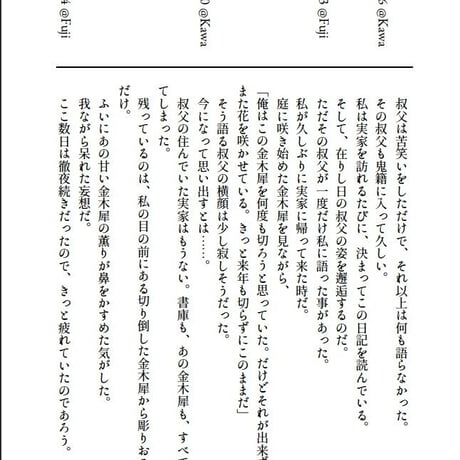 叔父は苦笑いをしただけで、それ以上は何も語らなかった。
その叔父も鬼籍に入って久しい。
私は実家を訪れるたびに、決まってこの日記を読んでいる。
そして、在りし日の叔父の姿を邂逅するのだ。
ただその叔父が一度だけ私に語った事があった。
私が久しぶりに実家に帰って来た時だ。
庭に咲き始めた金木犀を見ながら、
「俺はこの金木犀を何度も切ろうと思っていた。だけどそれが出来ず
また花を咲かせている。きっと来年も切らずにこのままだ」
そう語る叔父の横顔は少し寂しそうだった。
今になって思い出すとは……。
叔父の住んでいた実家はもうない。書庫も、あの金木犀も、すべ
てしまった。
残っているのは、私の目の前にある切り倒した金木犀から彫りお
だけ。
ふいにあの甘い金木犀の薫りが鼻をかすめた気がした。
我ながら呆れた妄想だ。
ここ数日は徹夜続きだったので、きっと疲れていたのであろう。
6 @Kawa
3 @Fuji
0 @Kawa
4 @Fuji